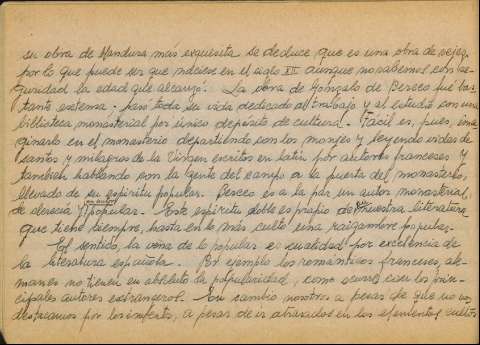 su obra de hechura más exquisita se deduce que es una obra de vejez,
por lo que puede ser que naciese en el siglo XII aunque no sabemos con se-
guridad la edad que alcanzó. La obra de Gonzalo de Berceo fué bas-
tante extensa. Pasó toda su vida dedicado al trabajo y al estudio con una
biblioteca monasterial por único depósito de cultura. Facil es, pues, ima-
ginarlo en el monasterio departiendo con los monjes y leyendo vidas de
santos y milagros de la Virgen escritos en latín por autores franceses y
tambien hablando con la gente del campo a la puerta del monasterio,
llevado de su espiritu popular. Berceo es a la par un autor monasterial,
de clerecía y un autor popular. Este espiritu doble es propio de nuestra literatura
que tiene siempre, hasta en lo más culto, una raigambre popular.
El sentido, la vena de lo popular es cualidad por excelencia de
la literatura española. Por ejemplo los romanticos franceses, ale-
manes no tienen en absoluto la popularidad, como ocurre con los prin-
cipales autores extranjeros. En cambio nosotros a pesar de que no nos
destacamos por los, a pesar de ir abrazados en los elementos cultos